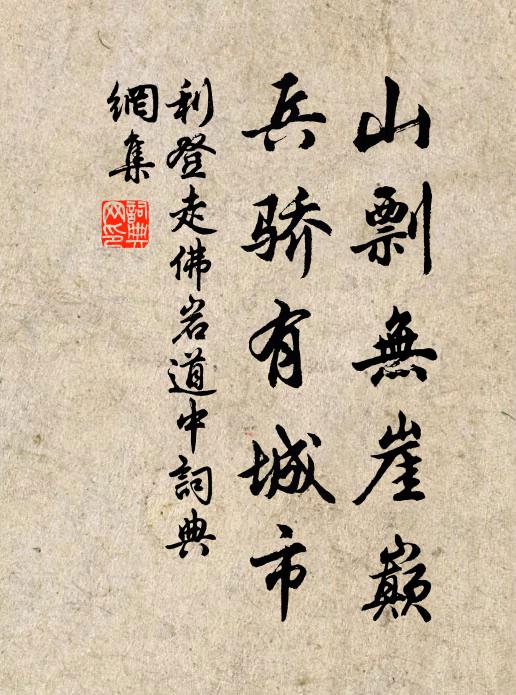 山剽無崖巔
兵骄有城市
利登走佛岩道中詞典
網集
詞典網印